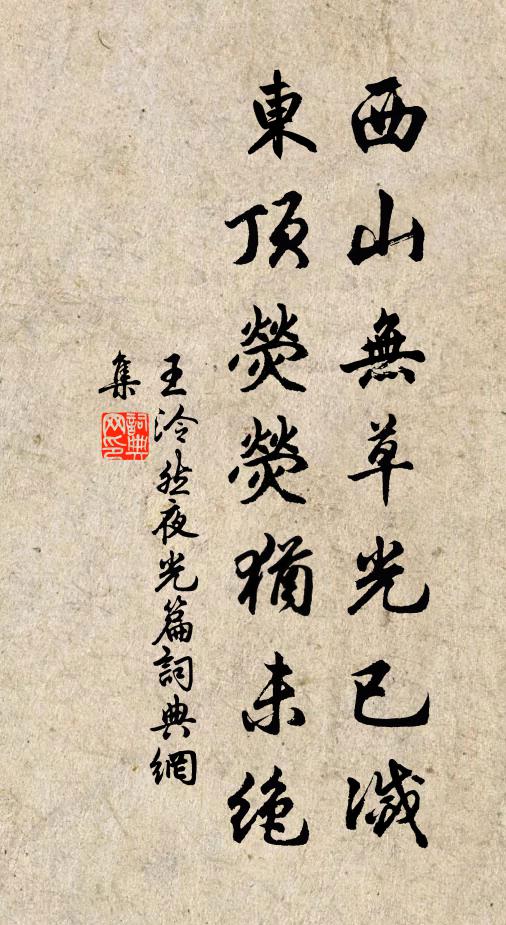 西山無草光已滅
東頂熒熒猶未絶
王泠然夜光篇詞典網
集
詞典网印